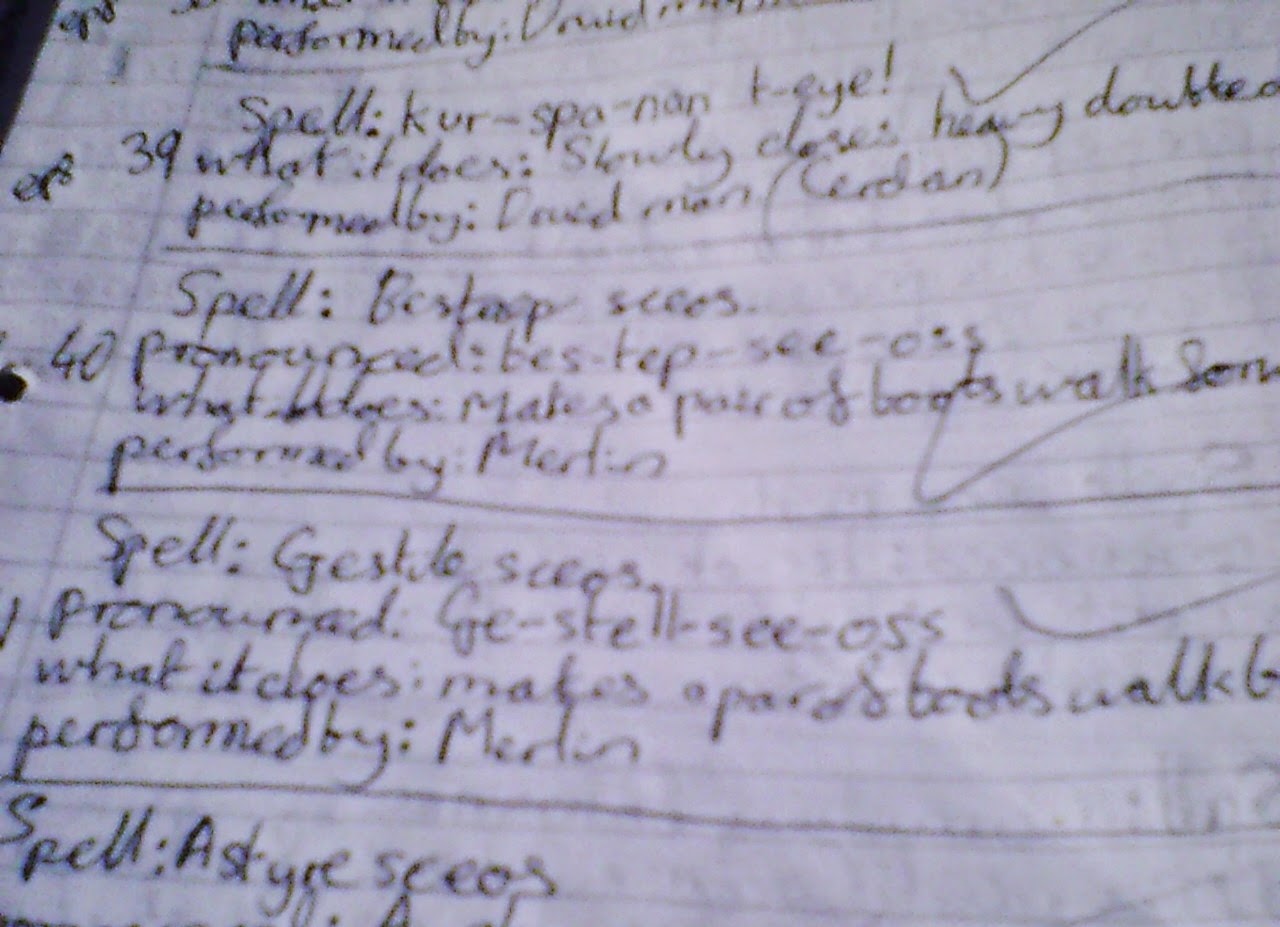 performed by: Druid man
Spell: kur-spa-nan t-eye!
39 what it does: Slowly closes heavy doubled
performed by: Druid man (Cerdan)
Spell: Bestæp sceos.
40 pronounced: bes-tep-see-oss
what it does: Makes a pair of boots walk
performed by: Merlin
Spell: sceos.
pronounced: Ge-stell-see-oss
what it does: makes a pair of boots walk
performed by: Merlin
Spell: Astyre sceos